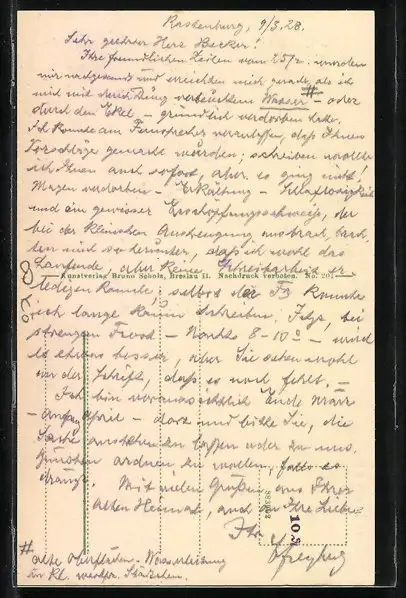 Rastenburg, 9/3.28.
Sehr geehrter Herr Becker!
Ihre freundlichen Zeilen vom 25/2. wurden
mir nachgesandt und erreichten mich gerade, als ich
mir mit verseuchtem Wasser # – oder
durch den Ekel – gründlich verdorben hatte.
Ich konnte am Fernsprecher veranlassen, daß Ihnen
Vorschläge gemacht würden; schreiben wollte
ich Ihnen auch sofort, aber es ging nicht!
Magen verdorben – Erkältung – Schlaflosigkeit
und ein gewisser Erschöpfungsschweiß, der
bei der kleinsten Anstrengung ausbrach, brach-
ten mich so herunter, daß ich wohl das
Laufende, aber keine er-
Kunstverlag Bruno Scholz, Breslau II. Nachdruck verboten. No.
ledigen konnte, selbst die konnte
ich lange kaum schreiben. Jetzt, bei
strengem Frost – Nachts 8–10° – wird
es etwas besser, aber Sie sehen wohl
an der Schrift, daß es noch fehlt. –
Ich bin voraussichtlich Ende März
– Anfang April – dort und bitte Sie, die
Sache anstehen zu lassen oder zu uns.
Gunsten ordnen zu wollen, falls es
drängt. Mit vielen Grüßen aus Ihrer
alten Heimat, auch an Ihre Lieben
Ihr
# alte Oberflächen-Wasserleitung
in kl. westpr. Städtchen.